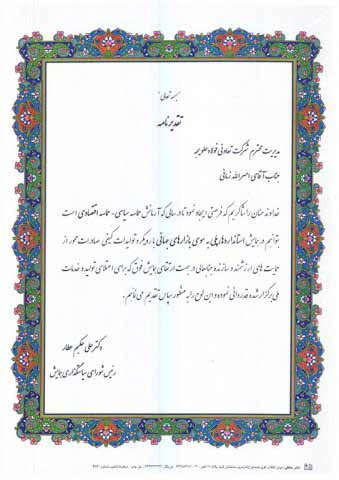 بسمه تعالی
تقدیرنامه
مدیریت محترم شرکت تعاونی فولاد علویجه
جناب آقای نصراله زمانی
خداوند منان را شاکریم که فرصتی ایجاد نمود تا در سالی که آرمانش حماسه سیاسی، حماسه اقتصادی است
بتوانیم در همایش استانداردهای ملی به سوی بازارهای جهانی با رویکرد تولیدات کیفی صادرات محور از
حمایت های ارزشمند و سازنده جنابعالی در جهت ارتقای همایش فوق که برای اعتلای تولید و خدمات
ملی برگزار شده قدردانی نموده و این لوح را به منظور سپاس تقدیم می نمائیم.
دکتر علی حکیم عطار
رئیس شورای سیاستگذاری همایش